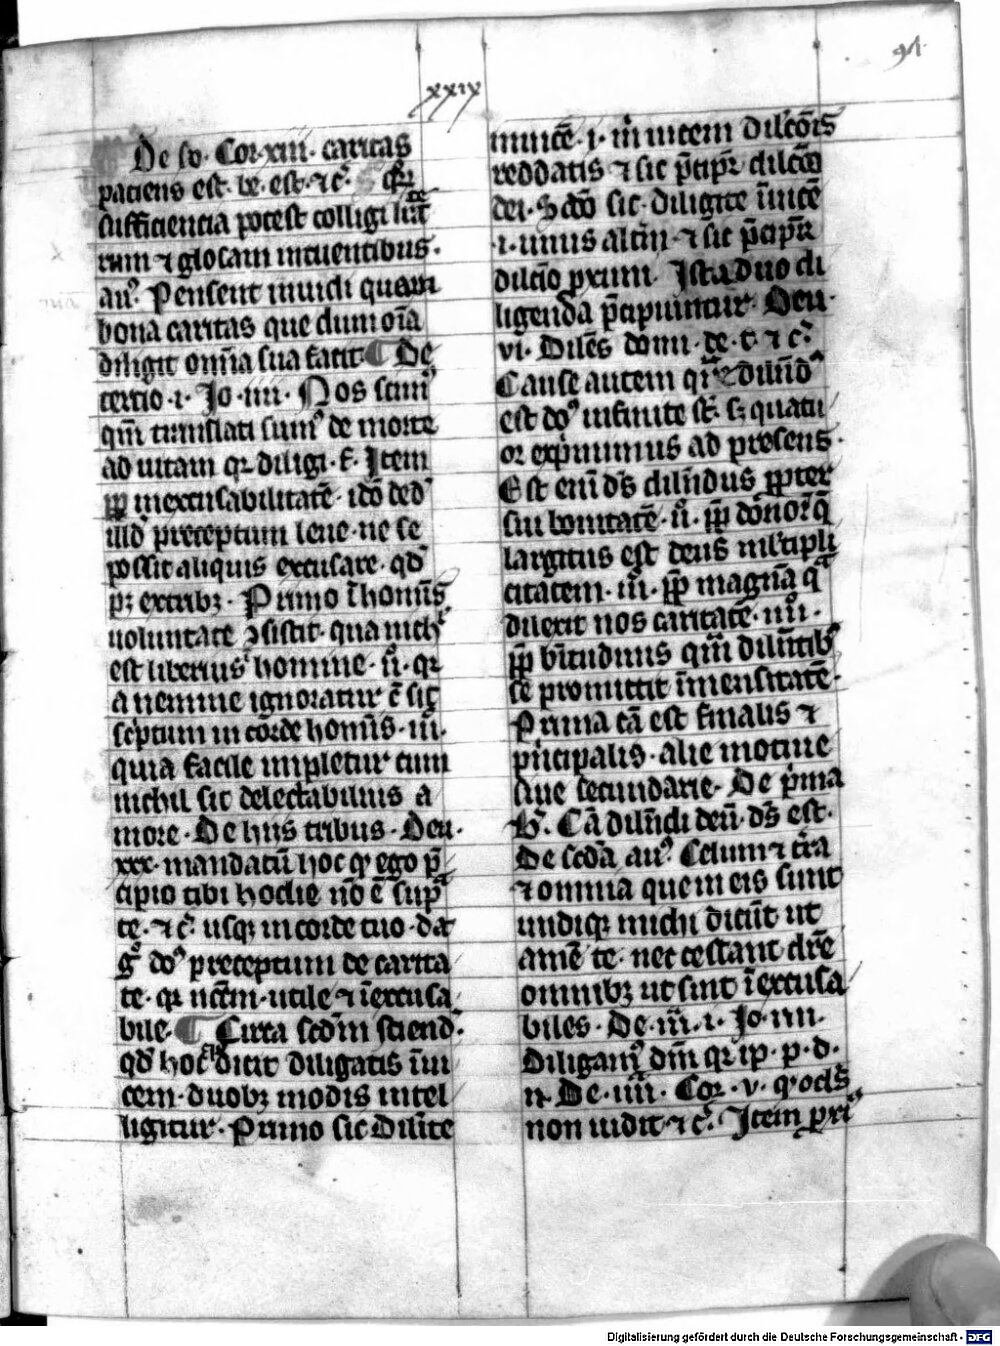 91
xxix
De s̄o. Cor. xiii. caritas
paciens est. be. est. ⁊ c̄.
sufficiencia potest colligi
rum ⁊ glosam intuentibus.
au? Pensent inuidi quam
bona caritas que dum oīa
diligit omīa sua facit ¶ De
tercio. i. Jo. iiii. Nos scim?
qm̄ translati sum? de morte
ad uitam qr diligi. f. Item
ꝓp inexcusabilitatē. idō ded
illd preceptum leue. ne se
possit aliquis excusare. qd
pꝫ ex tribꝫ. Primo ī honīs
uoluntate ꝯsistit. qua nich
est liberius homine. ii. qr
a nemine ignoratur ē sic
sc̄ptum in corde honīs. iii.
quia facile impletur cum
nichil sic delectabilius a
more. De hiis tribus. Deu.
xxx. mandatū hoc qͦ ego p̄
cipio tibi hodie nō ē sup̄
te. ⁊ c̄. usqꝫ in corde tuo.
dō? preceptum de carita
te. qr nc̄m. utile ⁊ īexcusa
bile. ¶ Circa scdm sciend.
qd hoc dicit diligatis īui
cem. duobꝫ modis intel
ligitur. Primo sic Dilīte
inuicē. i. inuicem dilc̄ōis
reddatis ⁊ sic p̄cipr dilcō
dei. Scdō sic. diligite īuicē
.i. unus altīn. ⁊ sic p̄cipr
dilcīo pxim. Ista duo di
ligenda p̄cipiuntur. Deu.
vi. Diliēs dom. de. t. ⁊ c̄.
Cause autem dilīnd
est dō? infinite st̄. sꝫ quatu
or exprimimus ad presens.
Est enī ds dilīndus ꝓpter
sui bonitatē. ii. ꝓp donoꝝ q̄
largitus est deus mltipli
citatem. iii. ꝓp magnā qͣ
dilexit nos caritatē. iiii.
ꝓp btitudinis qm̄ dilīntibꝰ
se promittit īmensitatē.
Prima cā est finalis ⁊
pncipalis. alie motiue
siue secundarie. De pͥma
B. Cā dilīndi deū. ds est.
De scdā au? Celum ⁊ tr̄a
⁊ omnia que in eis sunt
undiqꝫ michi dicūt ut
amē te. nec cessant dr̄e
omnibꝫ ut sint īexcusa
biles. De. iii. i. Jo. iiii.
Diligam? dm̄ qr ip. p. d.
n. De. iiii. Cor. v. qͦ ocls
non uidit ⁊ c̄. Item pri
Digitalisierung gefördert durch die Deutsche Forschungsgemeinschaft - DFG